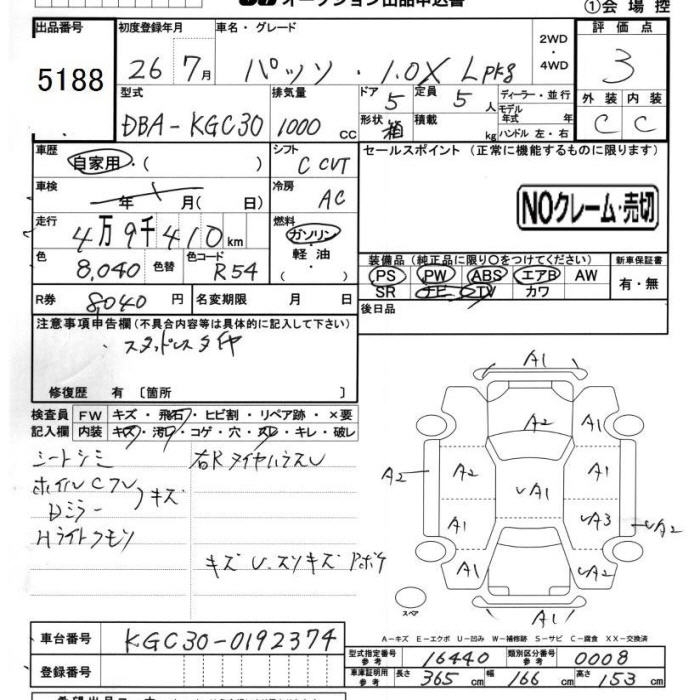 オークション出品申込書
①会場控
出品番号 5188
初度登録年月 26 7月
車名・グレード パッソ・1.0X Lpkg
2WD・4WD
評価点 3
外装 C 内装 C
型式 DBA-KGC30
排気量 1000 cc
ドア 5
形状 箱
定員 5人
積載 kg
ディーラー・並行
モデル年式 年
ハンドル 左・右
車歴 自家用・( )
シフト C CVT
セールスポイント (正常に機能するものに限ります)
NOクレーム・売切
車検 年 月( 日)
冷房 AC
走行 4万9千410km
燃料 ガソリン・軽油・( )
色 8,040 色替
色コード R54
装備品 (純正品に限り○をつけてください)
PS PW ABS エアB AW
SR ナビ TV カワ
新車保証書 有・無
R券 8040円
名変期限 月 日
後日品
注意事項申告欄(不具合内容等は具体的に記入して下さい)
スタッドレスタイヤ
修復歴 有 〔箇所 〕
検査員記入欄
FW キズ・飛石・ヒビ割・リペア跡・×要
内装 キズ・汚れ・コゲ・穴・スレ・キレ・破レ
シートシミ
ホイルCフレ
Dミラー
キズ
Hライトクモリ
キズ U.スリキズ アポチ
A1
A2
A1
A2
A2
A1
UA1
A1
UA3
UA2
A1
UA2
A1
スペア
A-キズ E-エクボ U-凹み W-補修跡 S-サビ C-腐食 XX-交換済
車台番号 KGC30-0192374
登録番号
型式指定番号参考 16440
類別区分番号参考 0008
車庫証明用参考 長さ 365cm 幅 166cm 高さ 153cm